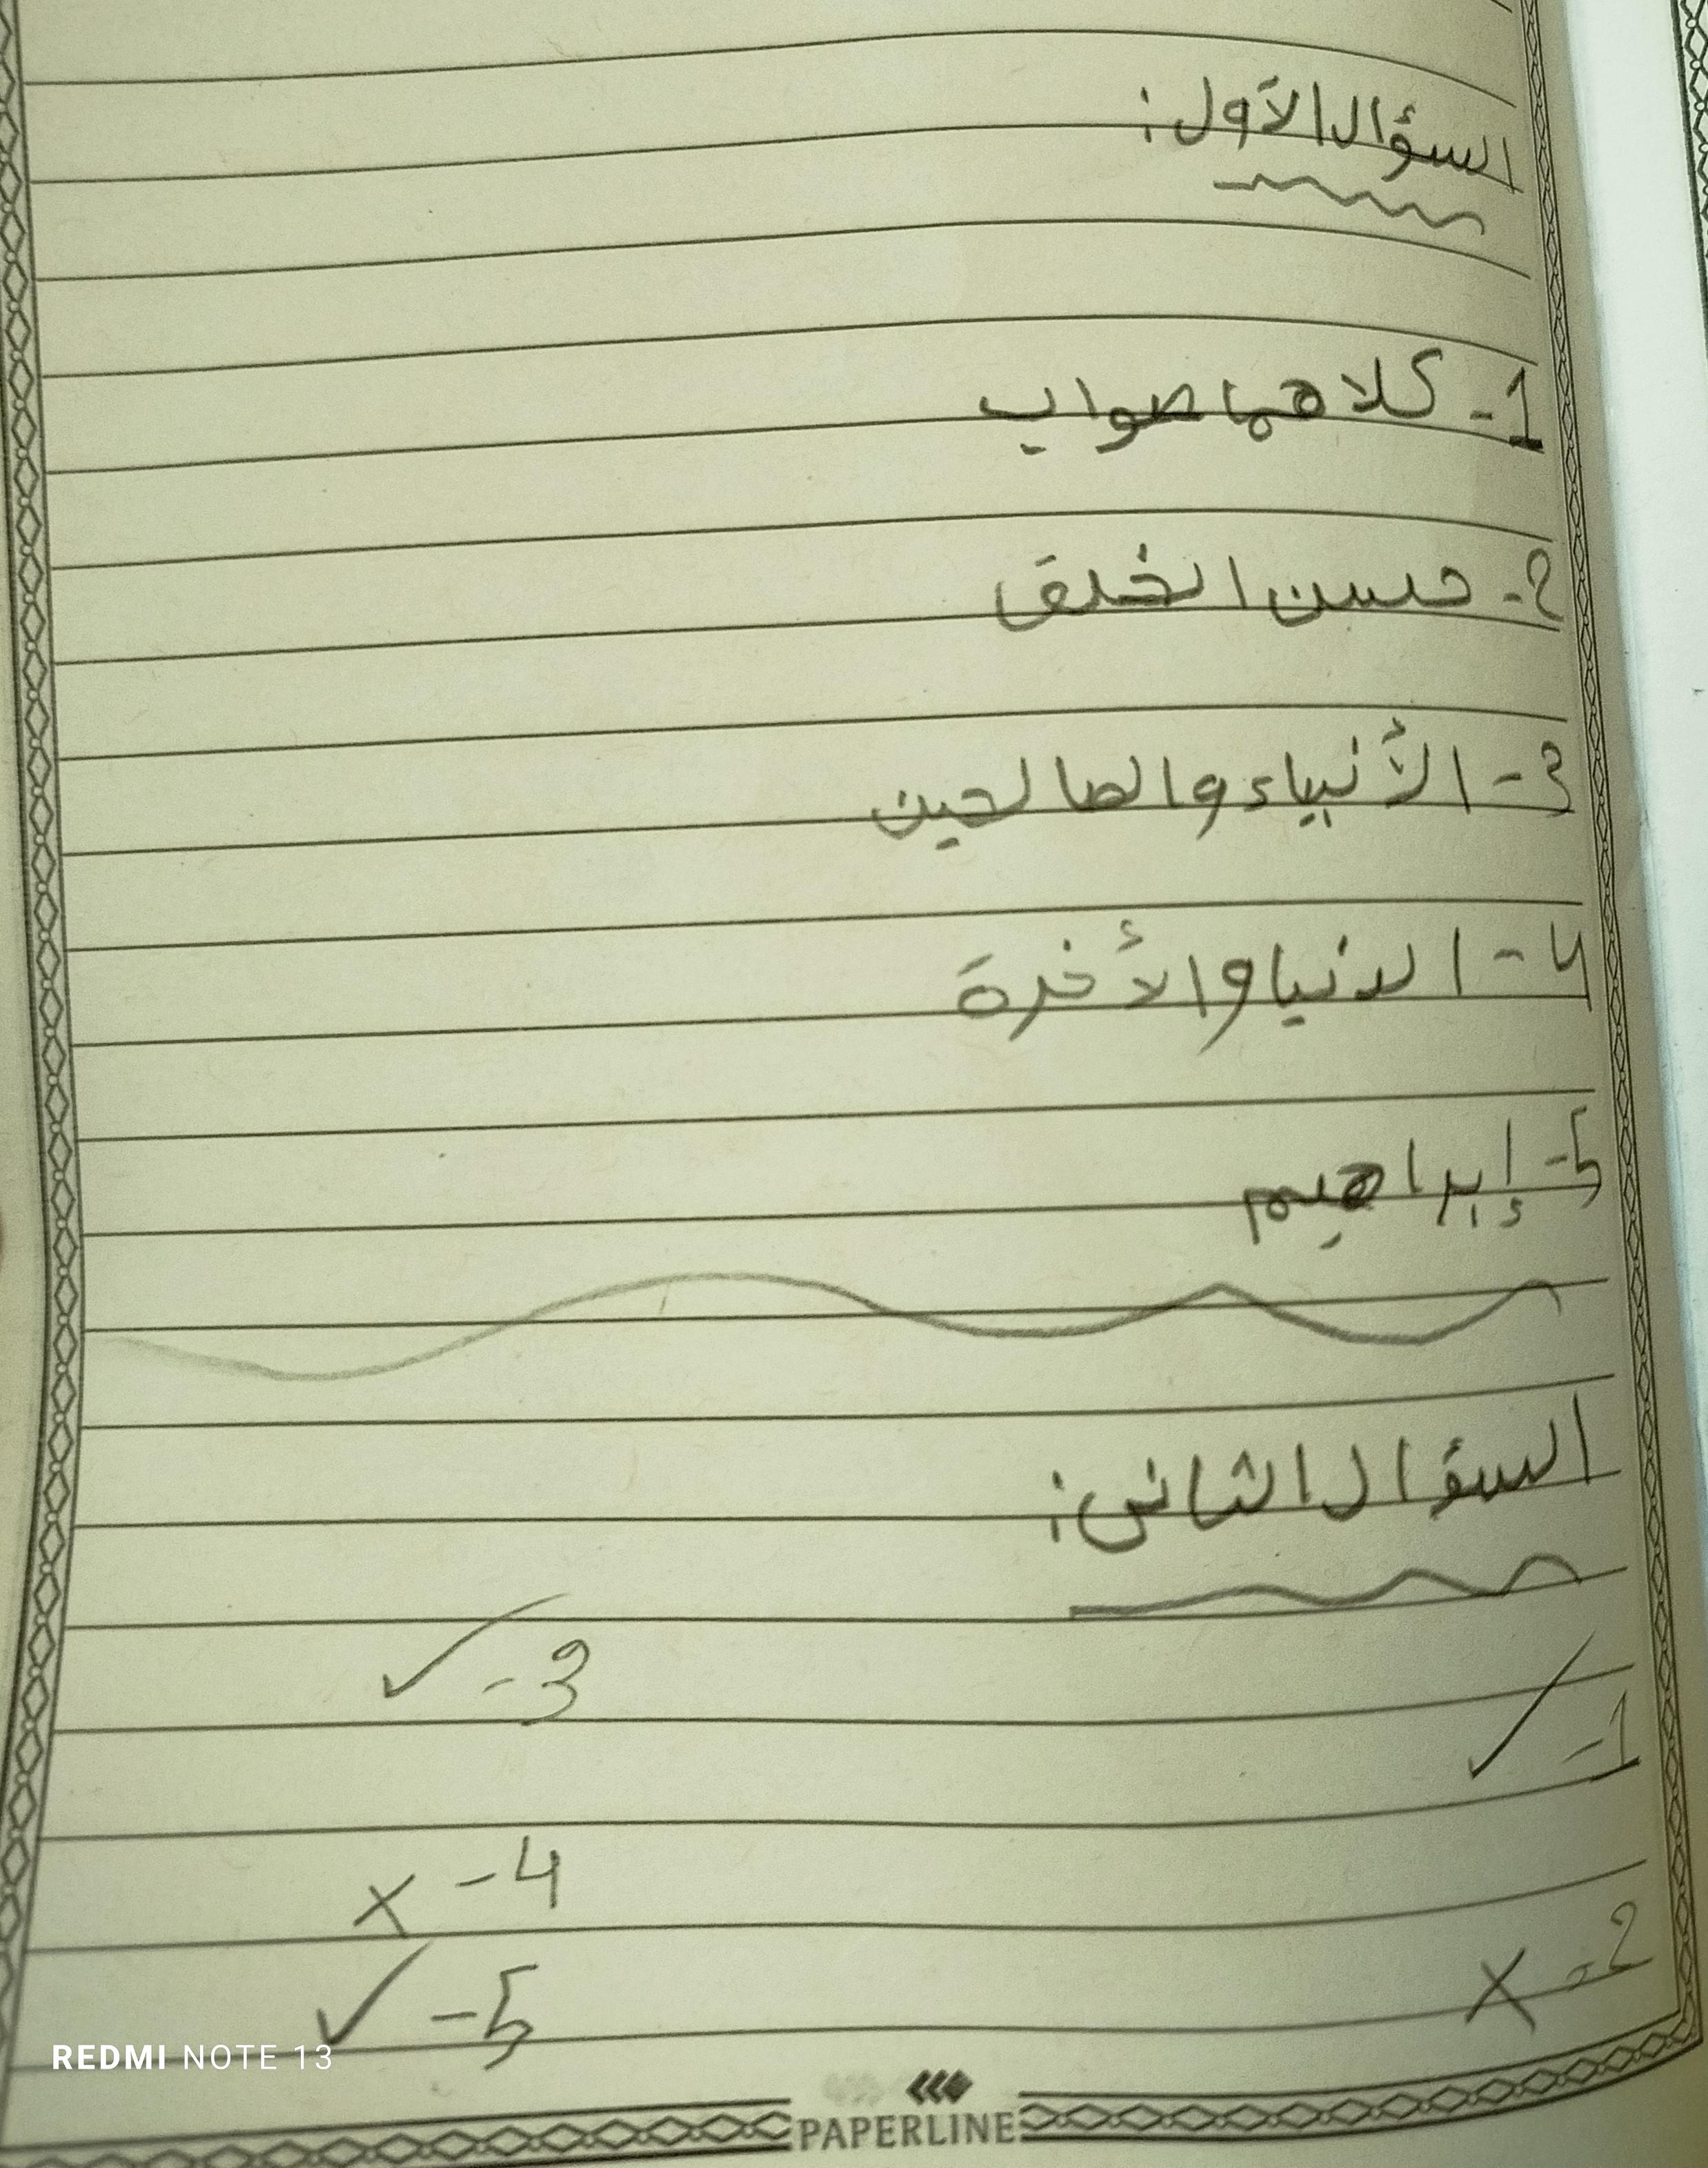 السؤال الأول:
1- كلاهما صواب
2- حسن الخلق
3- الأنبياء والصالحين
4- الدنيا والأخرة
5- إبراهيم
السؤال الثاني:
1- ✓
2- ×
3- ✓
4- ×
5- ✓
REDMI NOTE 13
PAPERLINE